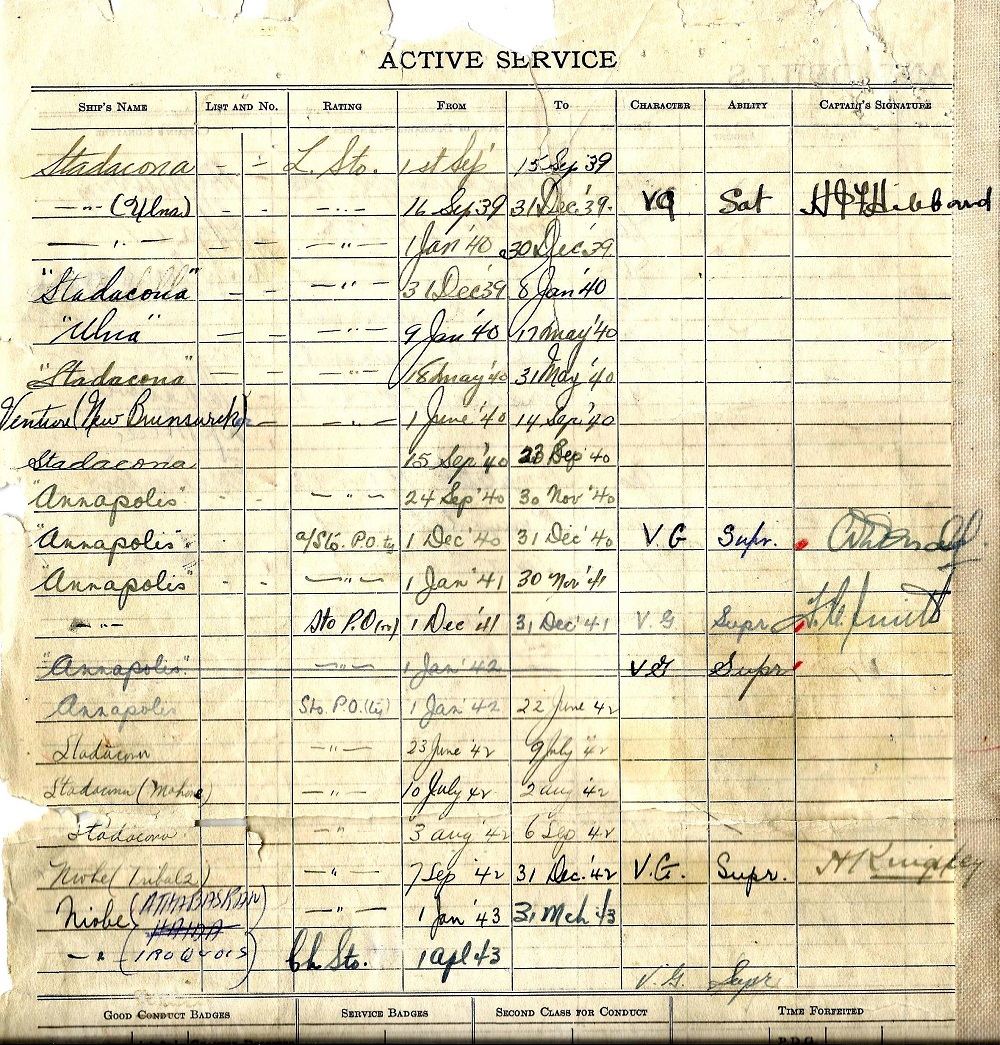 ACTIVE SERVICE
SHIP'S NAME LIST AND NO. RATING FROM TO CHARACTER ABILITY CAPTAIN'S SIGNATURE
Stadacona - - L. Sto. 1st Sep' 15 Sep 39
—"— (Ulna) - - —"— 16 Sep 39 31 Dec '39. VG Sat Hibbard
—"— - - —"— 1 Jan '40 30 Dec '39
"Stadacona" - - —"— 31 Dec 39 8 Jan '40
"Ulna" - - —"— 9 Jan '40 17 May '40
"Stadacona" - - —"— 18 May '40 31 May '40
Venture (New Brunswick) - —"— 1 June '40 14 Sep '40
Stadacona 15 Sep '40 23 Sep '40
"Annapolis" - - —"— 24 Sep '40 30 Nov '40
"Annapolis". - - a/Sto. P.O. ty 1 Dec '40 31 Dec '40 V.G Supr.
"Annapolis" - - —"— 1 Jan '41 30 Nov '41
—"— Sto P.O (ty) 1 Dec '41 31 Dec '41 V.G Supr
"Annapolis". —"— 1 Jan '42 VG Supr
Annapolis Sto. P.O. (ty) 1 Jan '42 22 June 42
Stadacona —"— 23 June '42 9 July '42
Stadacona (Mahone) —"— 10 July 42 2 Aug '42
Stadacona —"— 3 Aug '42 6 Sep 42
Niobe (Tribal 2) —"— 7 Sep '42 31 Dec. '42 V.G. Supr.
Niobe (ATHABASKAN) —"— 1 Jan '43 31 Mch '43
HAIDA
—"— (IROQUOIS) Ch Sto. 1 Apl 43
V.G. Supr
GOOD CONDUCT BADGES SERVICE BADGES SECOND CLASS FOR CONDUCT TIME FORFEITED